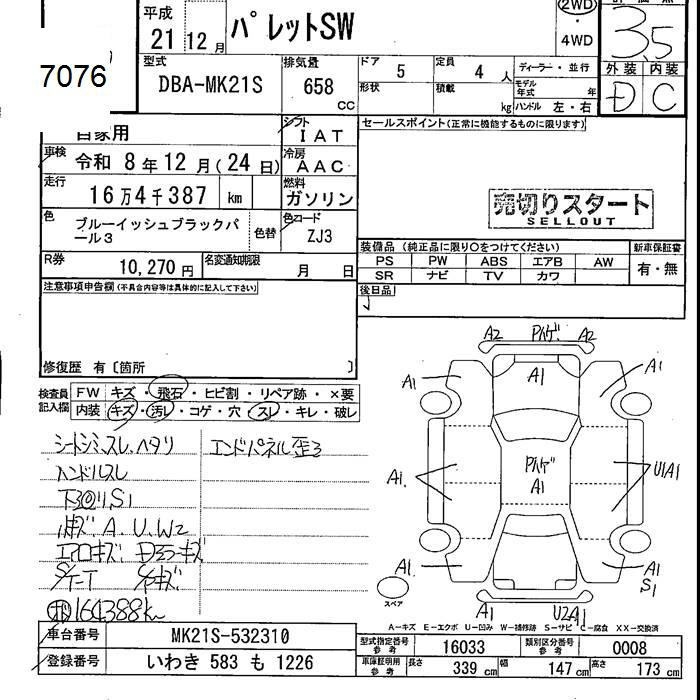 平成 21 12 月 パレットSW 2WD ・ 4WD
3.5
7076
型式 DBA-MK21S 排気量 658 CC ドア 5 定員 4 人 ディーラー・並行
形状 積載 kg モデル年式 年 ハンドル 左・右
外装 内装
D C
自家用 シフト IAT セールスポイント(正常に機能するものに限ります)
車検 令和 8 年 12 月 (24 日) 冷房 AAC
走行 16 万 4 千 387 km 燃料 ガソリン
売切りスタート
SELLOUT
色 ブルーイッシュブラックパール3 色替 色コード ZJ3
装備品 (純正品に限り〇をつけてください) 新車保証書
PS PW ABS エアB AW 有・無
SR ナビ TV カワ
R券 10,270 円 名変通知期限 月 日
後日品
注意事項申告欄 (不具合内容等は具体的に記入して下さい)
修復歴 有 〔箇所 〕
検査員記入欄 FW キズ ・ 飛石 ・ ヒビ割 ・ リペア跡 ・ ×要
内装 キズ ・ 汚レ ・ コゲ ・ 穴 ・ スレ ・ キレ ・ 破レ
シートシミ、スレ、ヘタリ エンドパネル歪ミ
ハンドルスレ
下回りS1
A、U、W2
エアロキズ
164388km
A2 A2
A1 A1 A1
A1 A1 U1A1
A1 A1
S1
A1 U2A1
スペア
A－キズ E－エクボ U－凹み W－補修跡 S－サビ C－腐食 XX－交換済
車台番号 MK21S-532310
登録番号 いわき 583 も 1226
型式指定番号 参考 16033 類別区分番号 参考 0008
車庫証明用 参考 長さ 339 cm 幅 147 cm 高さ 173 cm